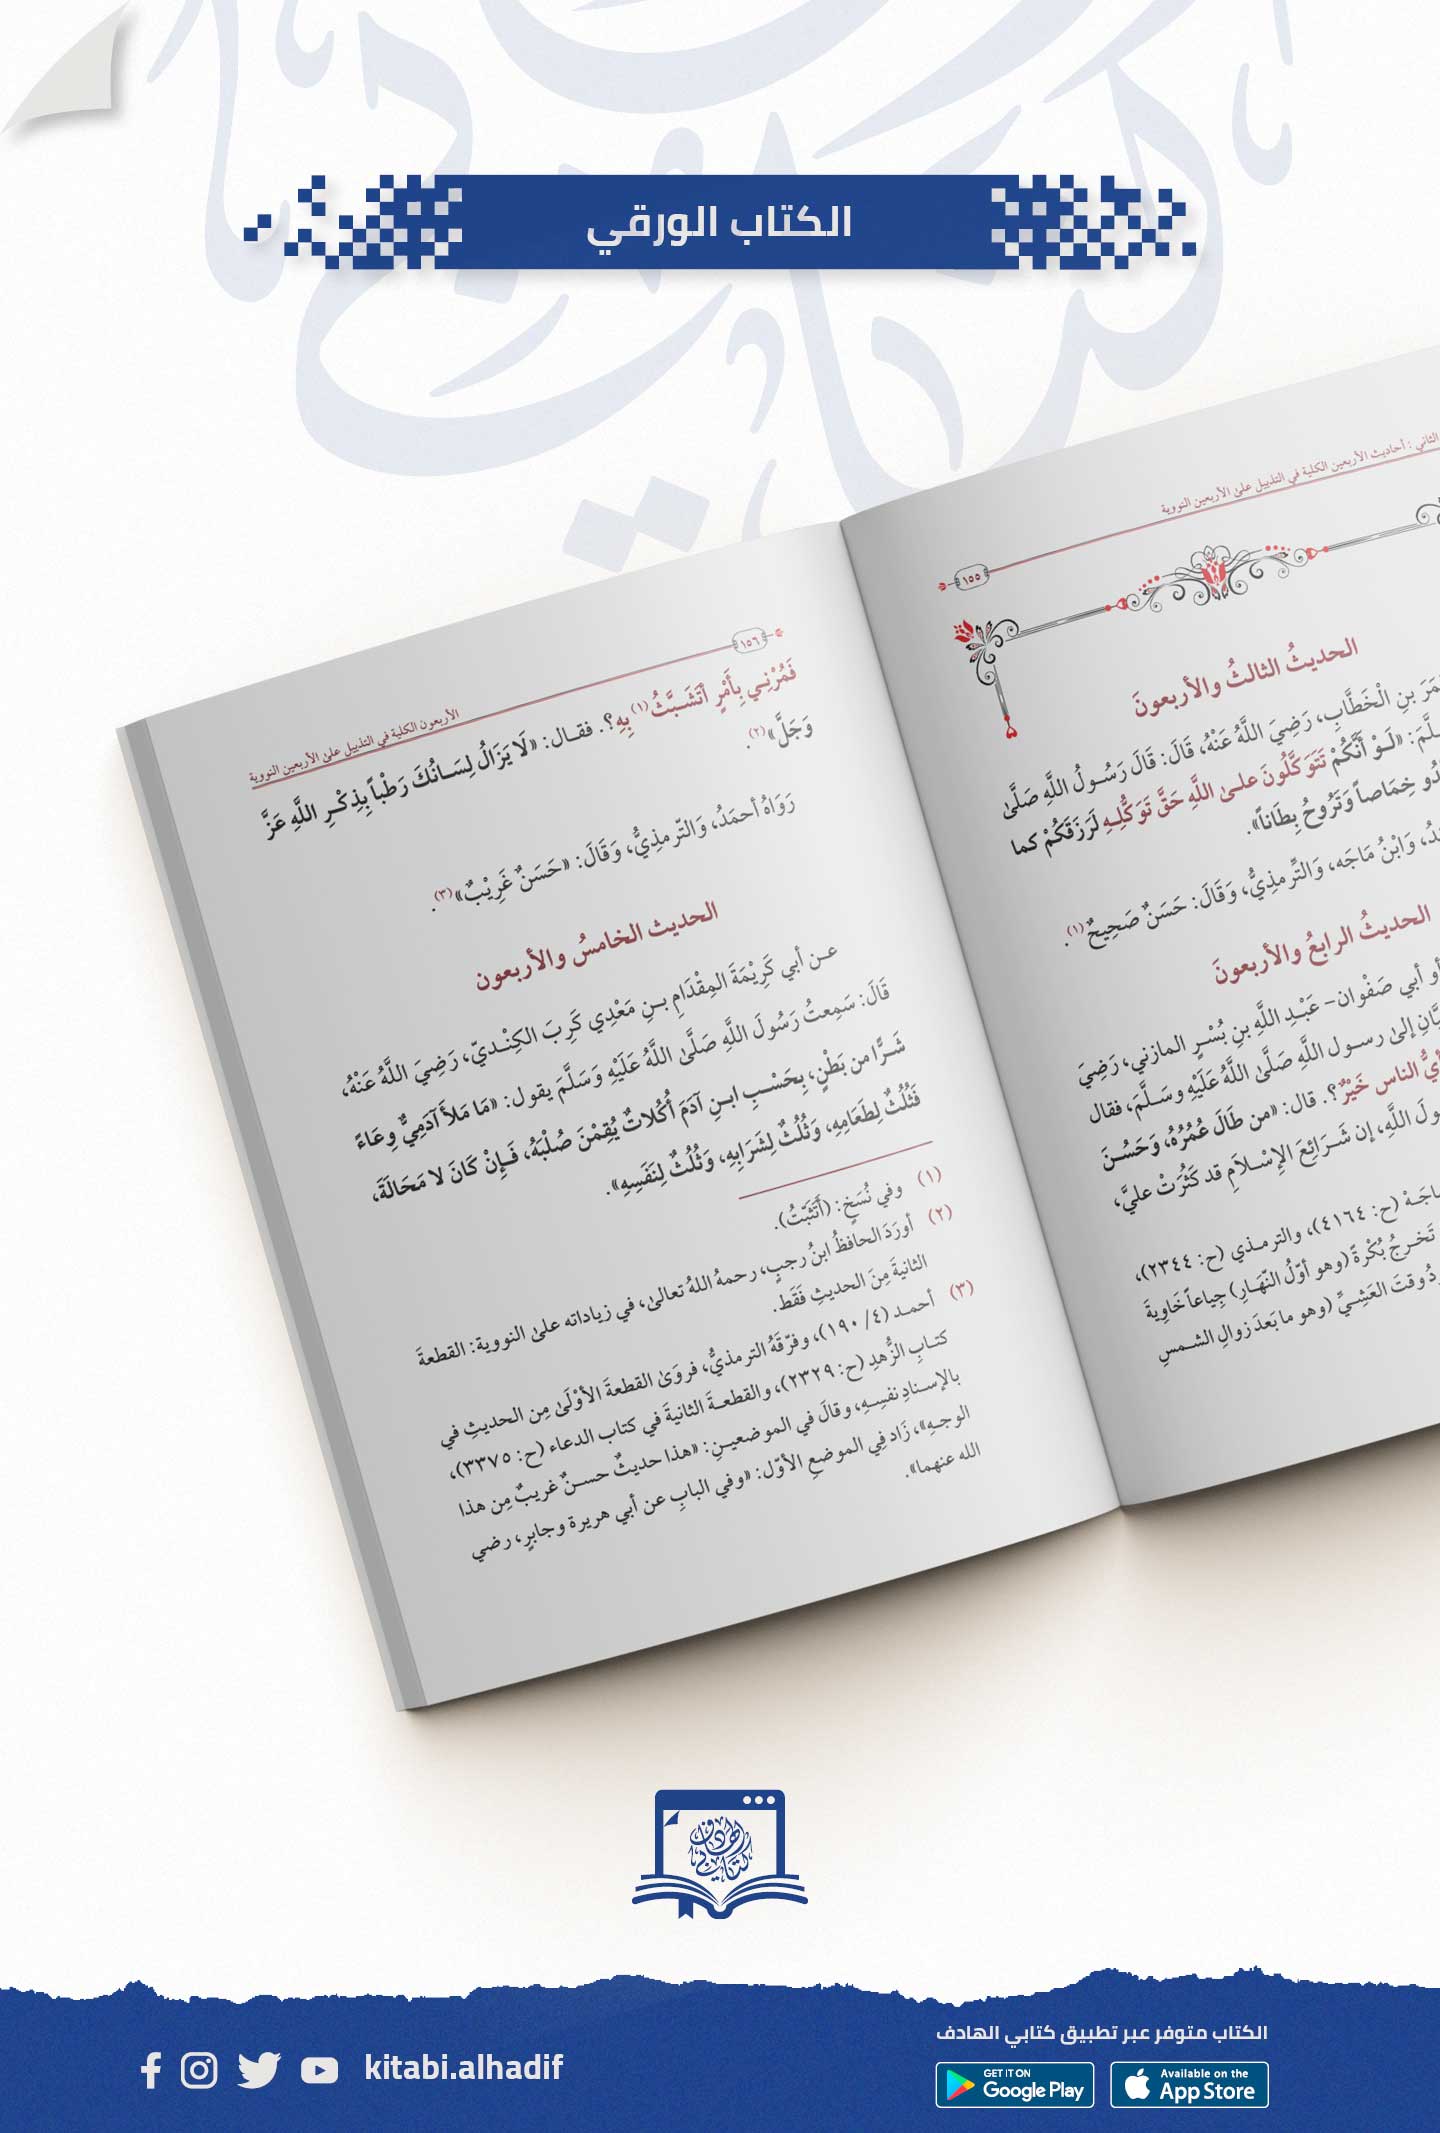 الكتاب الورقي
الثاني : أحاديث الأربعين الكلية في التذييل علىٰ الأربعين النووية
١٥٥
الحديثُ الثالثُ والأربعونَ
بنِ الْخَطَّابِ، رَضِيَ اللَّهُ عَنْهُ، قَالَ: قَالَ رَسُولُ اللَّهِ صَلَّىٰ
«لَـوْ أَنَّكُمْ تَتَوَكَّلُونَ علـىٰ اللَّهِ حَقَّ تَوَكُّلِـهِ لَرَزَقَكُمْ كما
خِمَاصاً وَتَرُوحُ بِطَاناً».
وَابْنُ مَاجَه، وَالتِّرمذِيُّ، وَقَالَ: حَسَنٌ صَحِيحٌ(١).
الحديثُ الرابعُ والأربعونَ
أو أبي صَفْوان- عَبْـدِ اللَّهِ بنِ بُسْـرٍ المازني، رَضِيَ
إلىٰ رسـول اللَّهِ صَلَّىٰ اللَّهُ عَلَيْهِ وسَـلَّمَ، فقال
الناس خَيْرٌ؟. قال: «من طَالَ عُمُرُهُ، وَحَسُنَ
اللَّهِ، إن شَـرَائِعَ الإِسْـلاَمِ قد كَثُرَتْ عليَّ،
(ح: ٤١٦٤)، والترمـذي (ح: ٢٣٤٤)،
تَخـرجُ بُكْرةً (وهو أوّلُ النّهَـارِ) جِياعاً خَاوِيةَ
وقتَ العَشِـيِّ (وهو ما بَعدَ زوالِ الشـمسِ
١٥٦
الأربعون الكلية في التذييل علىٰ الأربعين النووية
فَمُرْنِـي بِأَمْرٍ أَتَشَـبَّثُ(١) بِهِ؟. فقـال: «لَا يَزَالُ لِسَـانُكَ رَطْباً بِذِكْـرِ اللَّهِ عَزَّ
وَجَلَّ»(٢).
رَوَاهُ أحمَدُ، وَالتّرمذِيُّ، وَقَالَ: «حَسَنٌ غَرِيْبٌ»(٣).
الحديث الخامسُ والأربعون
عـن أبي كَرِيْمَةَ المِقْدَامِ بـنِ مَعْدِي كَرِبَ الكِنْـديّ، رَضِيَ اللَّهُ عَنْهُ،
قَالَ: سَمِعتُ رَسُولَ اللَّهِ صَلَّىٰ اللَّهُ عَلَيْهِ وَسَلَّمَ يقول: «مَا مَلأَ آدَمِيٌّ وِعَاءً
شَـرًّا من بَطْنٍ، بِحَسْـبِ ابـنِ آدَمَ أُكُلاتٌ يُقِمْنَ صُلْبَهُ، فَـإِنْ كَانَ لا مَحَالَةَ،
فَثُلُثٌ لِطَعَامِهِ، وَثُلُثٌ لِشَرَابِهِ، وَثُلُثٌ لِنَفَسِهِ».
(١) وفي نُسَخٍ: (أَتَثَبَّتُ).
(٢) أورَدَ الحافظُ ابنُ رجبٍ، رحمهُ اللهُ تعالىٰ، في زياداته علىٰ النووية: القطعةَ
الثانيةَ مِنَ الحديثِ فَقَط.
(٣) أحمـد (٤/ ١٩٠)، وفرّقَهُ الترمذيُّ، فروَىٰ القطعةَ الأوْلَىٰ مِن الحديثِ في
كتـابِ الزُّهدِ (ح: ٢٣٢٩)، والقطعـةَ الثانيةَ في كتاب الدعاء (ح: ٣٣٧٥)،
بالإسـنادِ نفسِـهِ، وقالَ في الموضعيـنِ: «هذا حديثٌ حسـنٌ غريبٌ مِن هذا
الوجـهِ»، زَاد فِي الموضعِ الأوّل: «وفي البابِ عن أبي هريرة وجابرٍ، رضي
الله عنهما».
كتابي الهادف
الكتاب متوفر عبر تطبيق كتابي الهادف
kitabi.alhadif
GET IT ON
Google Play
Available on the
App Store